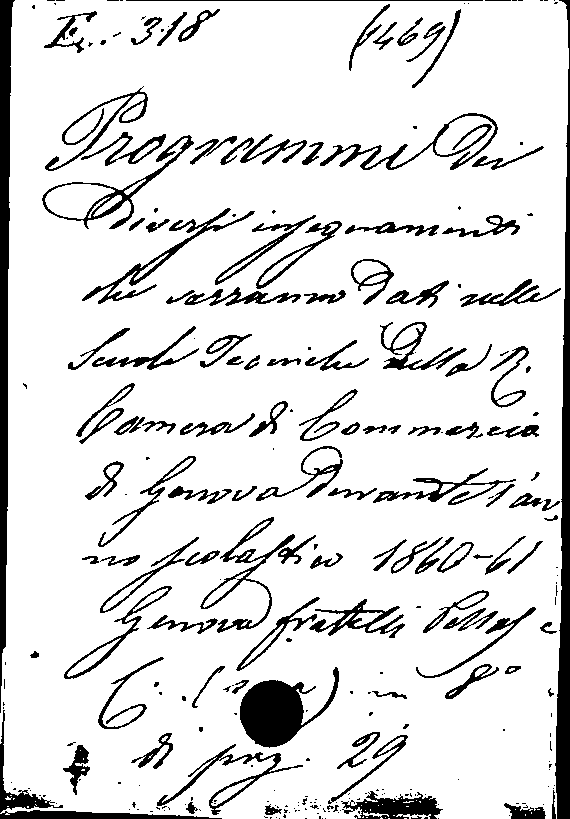 E. 318 (1469)
Programmi dei
diversi insegnamenti
che saranno dati nelle
Scuole Tecniche della R.
Camera di Commercio
di Genova durante l'an-
no scolastico 1860-61
Genova fratelli Pellas e
C. ( ) in 8°
di pag. 29